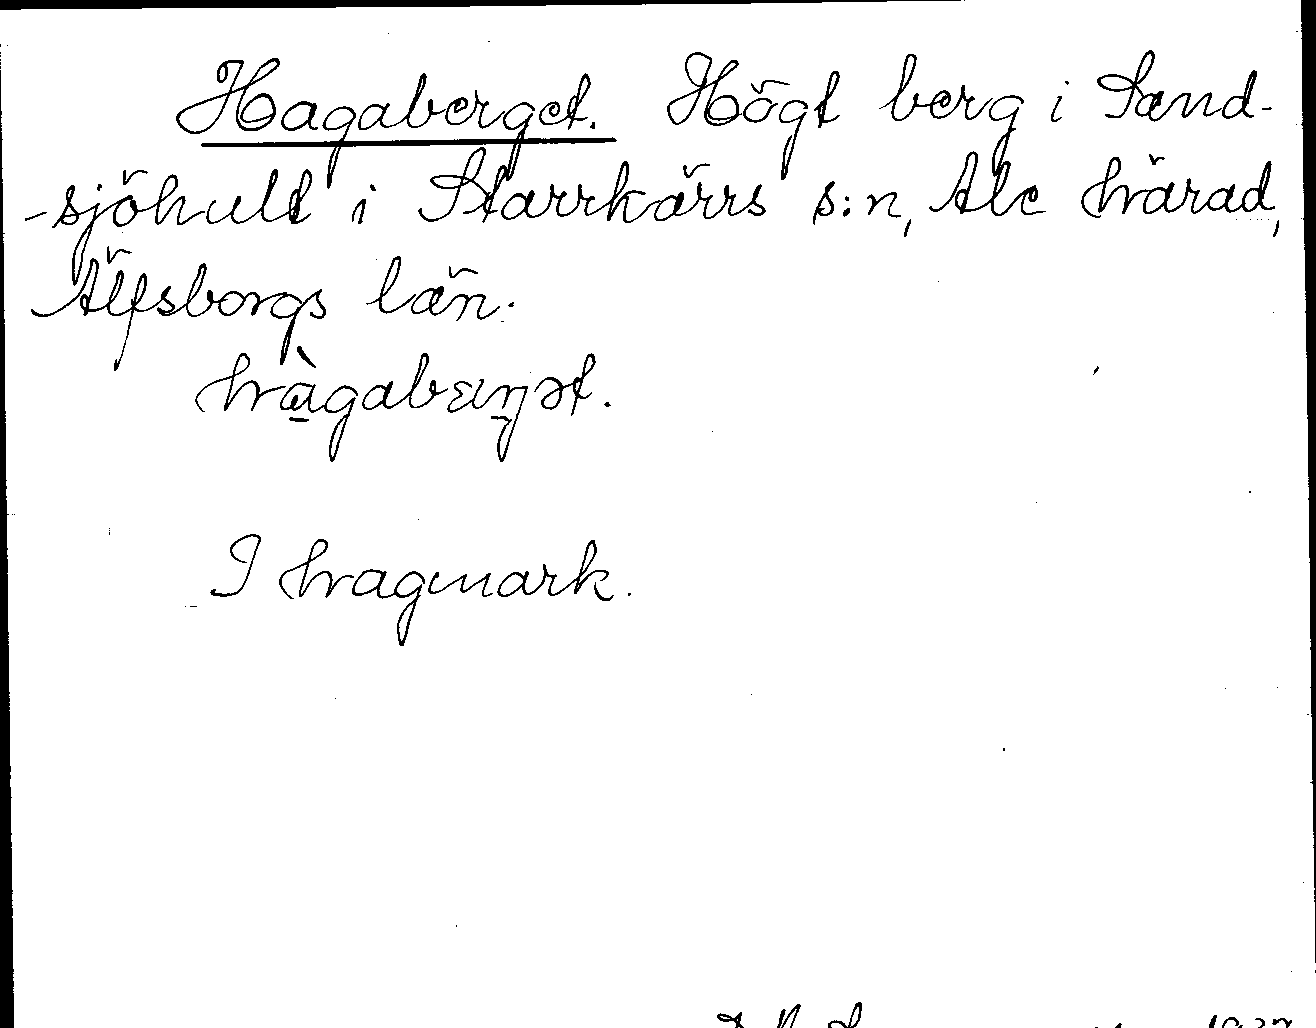 Hagaberget. Högt berg i Sand-
-sjöhult i Starrkärrs s:n, Ale härad,
Älfsborgs län.
hàgabæŋət.
I hagmark.